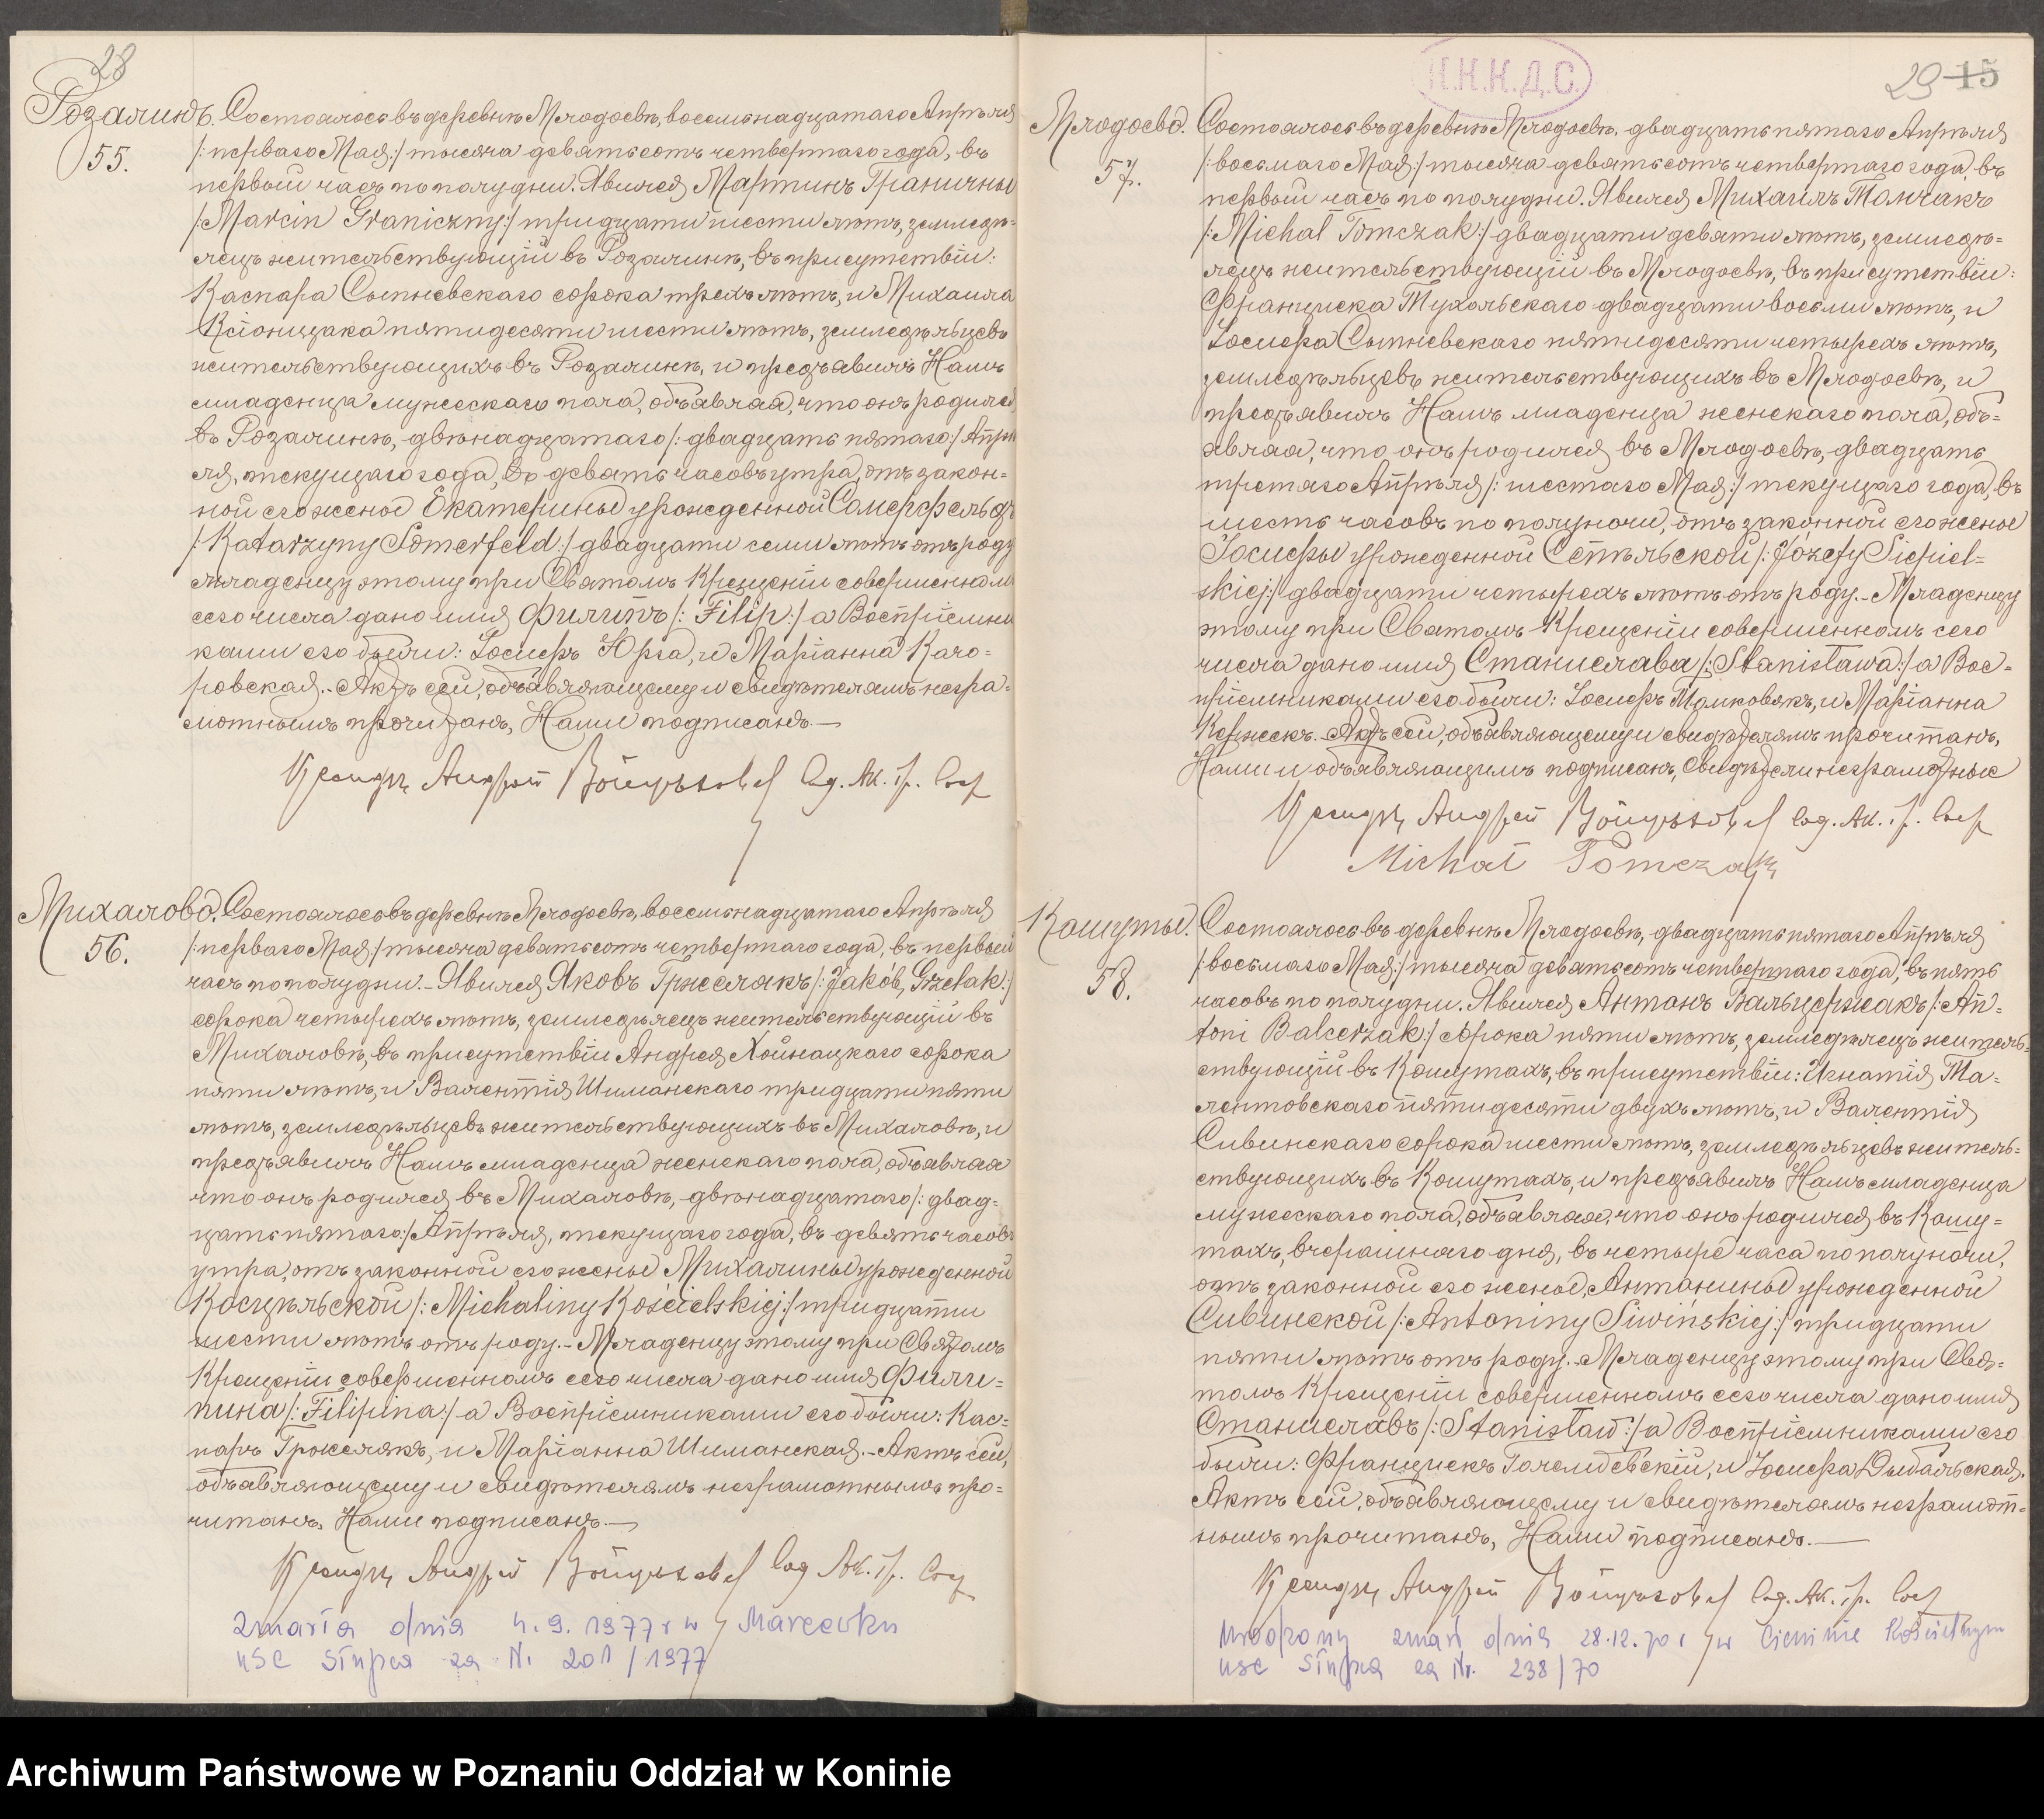 28
Розалинъ. Состоялось въ деревнѣ Млодоевѣ, восемьнадцатаго Апрѣля
55. /: перваго Мая :/ тысяча девятьсотъ четвертаго года, въ
первый часъ по полудни. Явился Мартинъ Граничны
/: Marcin Graniczny :/ тридцати шести лѣтъ, земледѣ=
лецъ жительствующій въ Розалинѣ, въ присутствіи:
Каспара Сытневскаго сорока трехъ лѣтъ, и Михаила
Ксіонщака пятидесяти шести лѣтъ, земледѣльцевъ
жительствующихъ въ Розалинѣ, и предъявилъ Намъ
младенца мужескаго пола, объявляя, что онъ родился
въ Розалинѣ, двѣнадцатаго /: двадцать пятаго :/ Апрѣ
ля, текущаго года, въ девять часовъ утра, отъ закон=
ной его жены Екатерины урожденной Сомерфельдъ
/: Katarzyny Somerfeld :/ двадцати семи лѣтъ отъ роду
младенцу этому при Святомъ Крещеніи совершенномъ
сего числа дано имя Филипъ /: Filip :/ а Воспріемни
ками его были: Іосифъ Юрга, и Маріанна Каго=
ровская. - Актъ сей, объявляющему и свидѣтелямъ негра=
мотнымъ прочитанъ, Нами подписанъ. —
Ксендзъ Андрей Войцѣховс Сод. Ак. Гр. Сос
Михалово. Состоялось въ деревнѣ Млодоевѣ, восемьнадцатаго Апрѣля
56. /: перваго Мая :/ тысяча девятьсотъ четвертаго года, въ первый
часъ по полудни. - Явился Яковъ Гржелякъ /: Jakób Grzelak :/
сорока четырехъ лѣтъ, земледѣлецъ жительствующій въ
Михаловѣ, въ присутствіи Андрея Хойнацкаго сорока
пяти лѣтъ, и Валентія Шиманскаго тридцати пяти
лѣтъ, земледѣльцевъ жительствующихъ въ Михаловѣ, и
предъявилъ Намъ младенца женскаго пола, объявляя
что онъ родился въ Михаловѣ, двѣнадцатаго /: двад=
цать пятаго :/ Апрѣля, текущаго года, въ девять часовъ
утра, отъ законной его жены Михалины урожденной
Косцѣльской /: Michaliny Kościelskiej :/ тридцати
шести лѣтъ отъ роду. - Младенцу этому при Святомъ
Крещеніи совершенномъ сего числа дано имя Фили=
пина /: Filipina :/ а Воспріемниками его были: Кас=
паръ Гржелякъ, и Маріанна Шиманская. - Актъ сей,
объявляющему и свидѣтелямъ неграмотнымъ про=
читанъ, Нами подписанъ. —
Ксендзъ Андрей Войцѣховс Сод. Ак. Гр. Сос
zmarła dnia 4.9.1977 r w Marcewku
USC Słupca za Nr 201/1977
Н.К.Н.Д.С.
29 15
Млодоево. Состоялось въ деревнѣ Млодоевѣ, двадцать пятаго Апрѣля
57. /: восьмаго Мая :/ тысяча девятьсотъ четвертаго года, въ
первый часъ по полудни. Явился Михаилъ Томчакъ
/: Michał Tomczak :/ двадцати девяти лѣтъ, земледѣ=
лецъ жительствующій въ Млодоевѣ, въ присутствіи:
Франциска Тухольскаго двадцати восьми лѣтъ, и
Іосифа Сытневскаго пятидесяти четырехъ лѣтъ,
земледѣльцевъ жительствующихъ въ Млодоевѣ, и
предъявилъ Намъ младенца женскаго пола, объ=
являя, что онъ родился въ Млодоевѣ, двадцать
третяго Апрѣля /: шестаго Мая :/ текущаго года, въ
шесть часовъ по полуночи, отъ законной его жены
Іосифы урожденной Сѣпѣльской /: Józefy Siepiel=
skiej :/ двадцати четырехъ лѣтъ отъ роду. - Младенцу
этому при Святомъ Крещеніи совершенномъ сего
числа дано имя Станислава /: Stanisława :/ а Вос=
пріемниками его были: Іосифъ Томковякъ, и Маріанна
Актъ сей, объявляющему и свидѣтелямъ прочитанъ,
Нами и объявляющимъ подписанъ, свидѣтели неграмотные
Ксендзъ Андрей Войцѣховс Сод. Ак. Гр. Сос
Michał Tomczak
Кошуты. Состоялось въ деревнѣ Млодоевѣ, двадцать пятаго Апрѣля
58. /: восьмаго Мая :/ тысяча девятьсотъ четвертаго года, въ пять
часовъ по полудни. Явился Антонъ Вальцержакъ /: An=
toni Balcerzak :/ сорока пяти лѣтъ, земледѣлецъ житель=
ствующій въ Кошутахъ, въ присутствіи: Игнатія Та=
лентовскаго пятидесяти двухъ лѣтъ, и Валентія
Сивинскаго сорока шести лѣтъ, земледѣльцевъ житель=
ствующихъ въ Кошутахъ, и предъявилъ Намъ младенца
мужескаго пола, объявляя, что онъ родился въ Кошу=
тахъ, вчерашняго дня, въ четыре часа по полуночи,
отъ законной его жены, Антонины урожденной
Сивинской /: Antoniny Siwińskiej :/ тридцати
пяти лѣтъ отъ роду. - Младенцу этому при Свя=
томъ Крещеніи совершенномъ сего числа дано имя
Станиславъ /: Stanisław :/ а Воспріемниками его
были: Францискъ Голембевскій, и Іосифа Дыбальская.
Актъ сей, объявляющему и свидѣтелямъ неграмот=
нымъ прочитанъ, Нами подписанъ. —
Ксендзъ Андрей Войцѣховс Сод. Ак. Гр. Сос
Urodzony zmarł dnia 28.12.70 r w Cieninie Kościelnym
USC Słupca za Nr. 238/70
Archiwum Państwowe w Poznaniu Oddział w Koninie